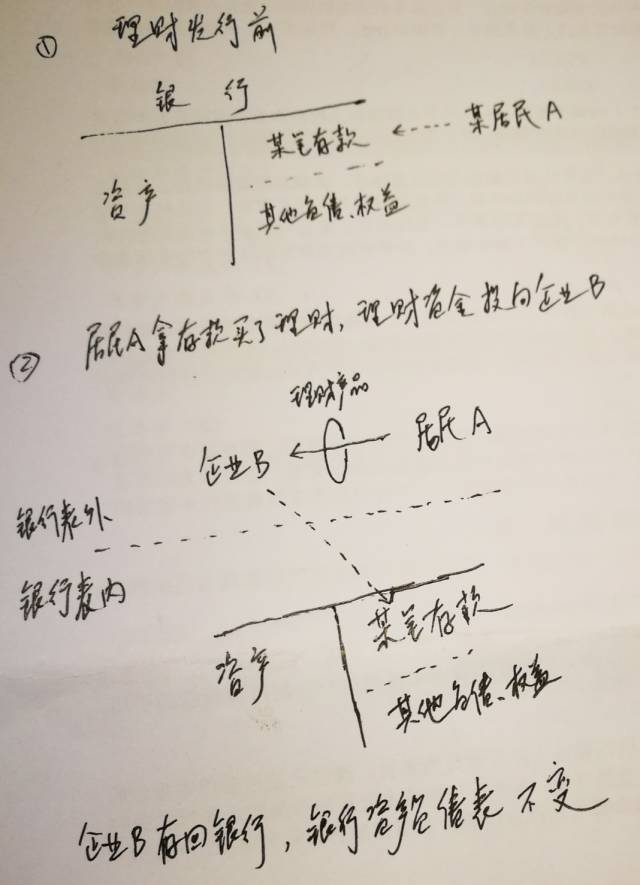 ① 理财发行前
银 行
某笔存款 ← 某居民A
资产
其他负债、权益
② 居民A拿存款买了理财,理财资金投向企业B
理财产品
企业B ← 居民A
银行表外
银行表内
某笔存款
资产
其他负债、权益
企业B存回银行,银行资产负债表不变